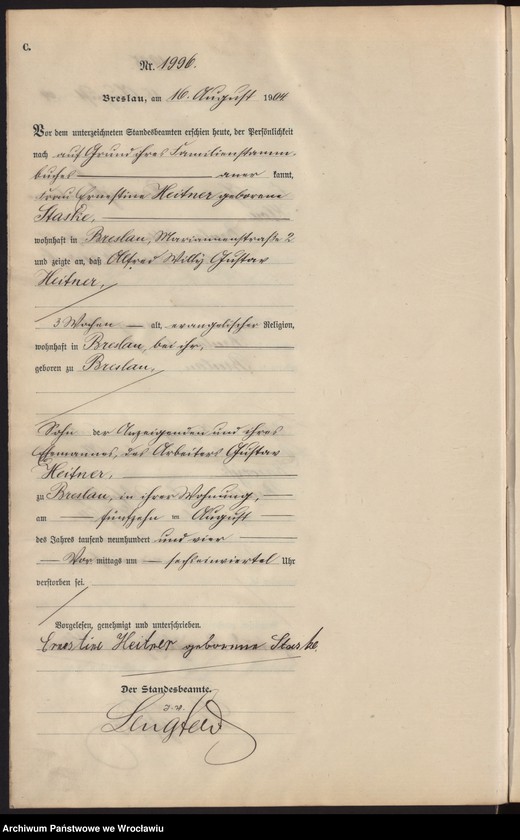 C.
Nr. 1996.
Breslau, am 16. August 1904
Vor dem unterzeichneten Standesbeamten erschien heute, der Persönlichkeit
nach auf Grund ihres Familienstamm-
buches aner kannt,
Frau Ernestine Heitner geborene
Staske,
wohnhaft in Breslau, Mariannenstraße 2
und zeigte an, daß Alfred Willy Gustav
Heitner,
3 Wochen alt, evangelischer Religion,
wohnhaft in Breslau, bei ihr,
geboren zu Breslau,
Sohn der Anzeigenden und ihres
Ehemannes, des Arbeiters Gustav
Heitner,
zu Breslau, in ihrer Wohnung,
am fünfzehn ten August
des Jahres tausend neunhundert und vier
Vor mittags um sechseinviertel Uhr
verstorben sei.
Vorgelesen, genehmigt und unterschrieben.
Ernestine Heitner geborene Staske.
Der Standesbeamte.
J. V.
Lengfeld
Archiwum Państwowe we Wrocławiu